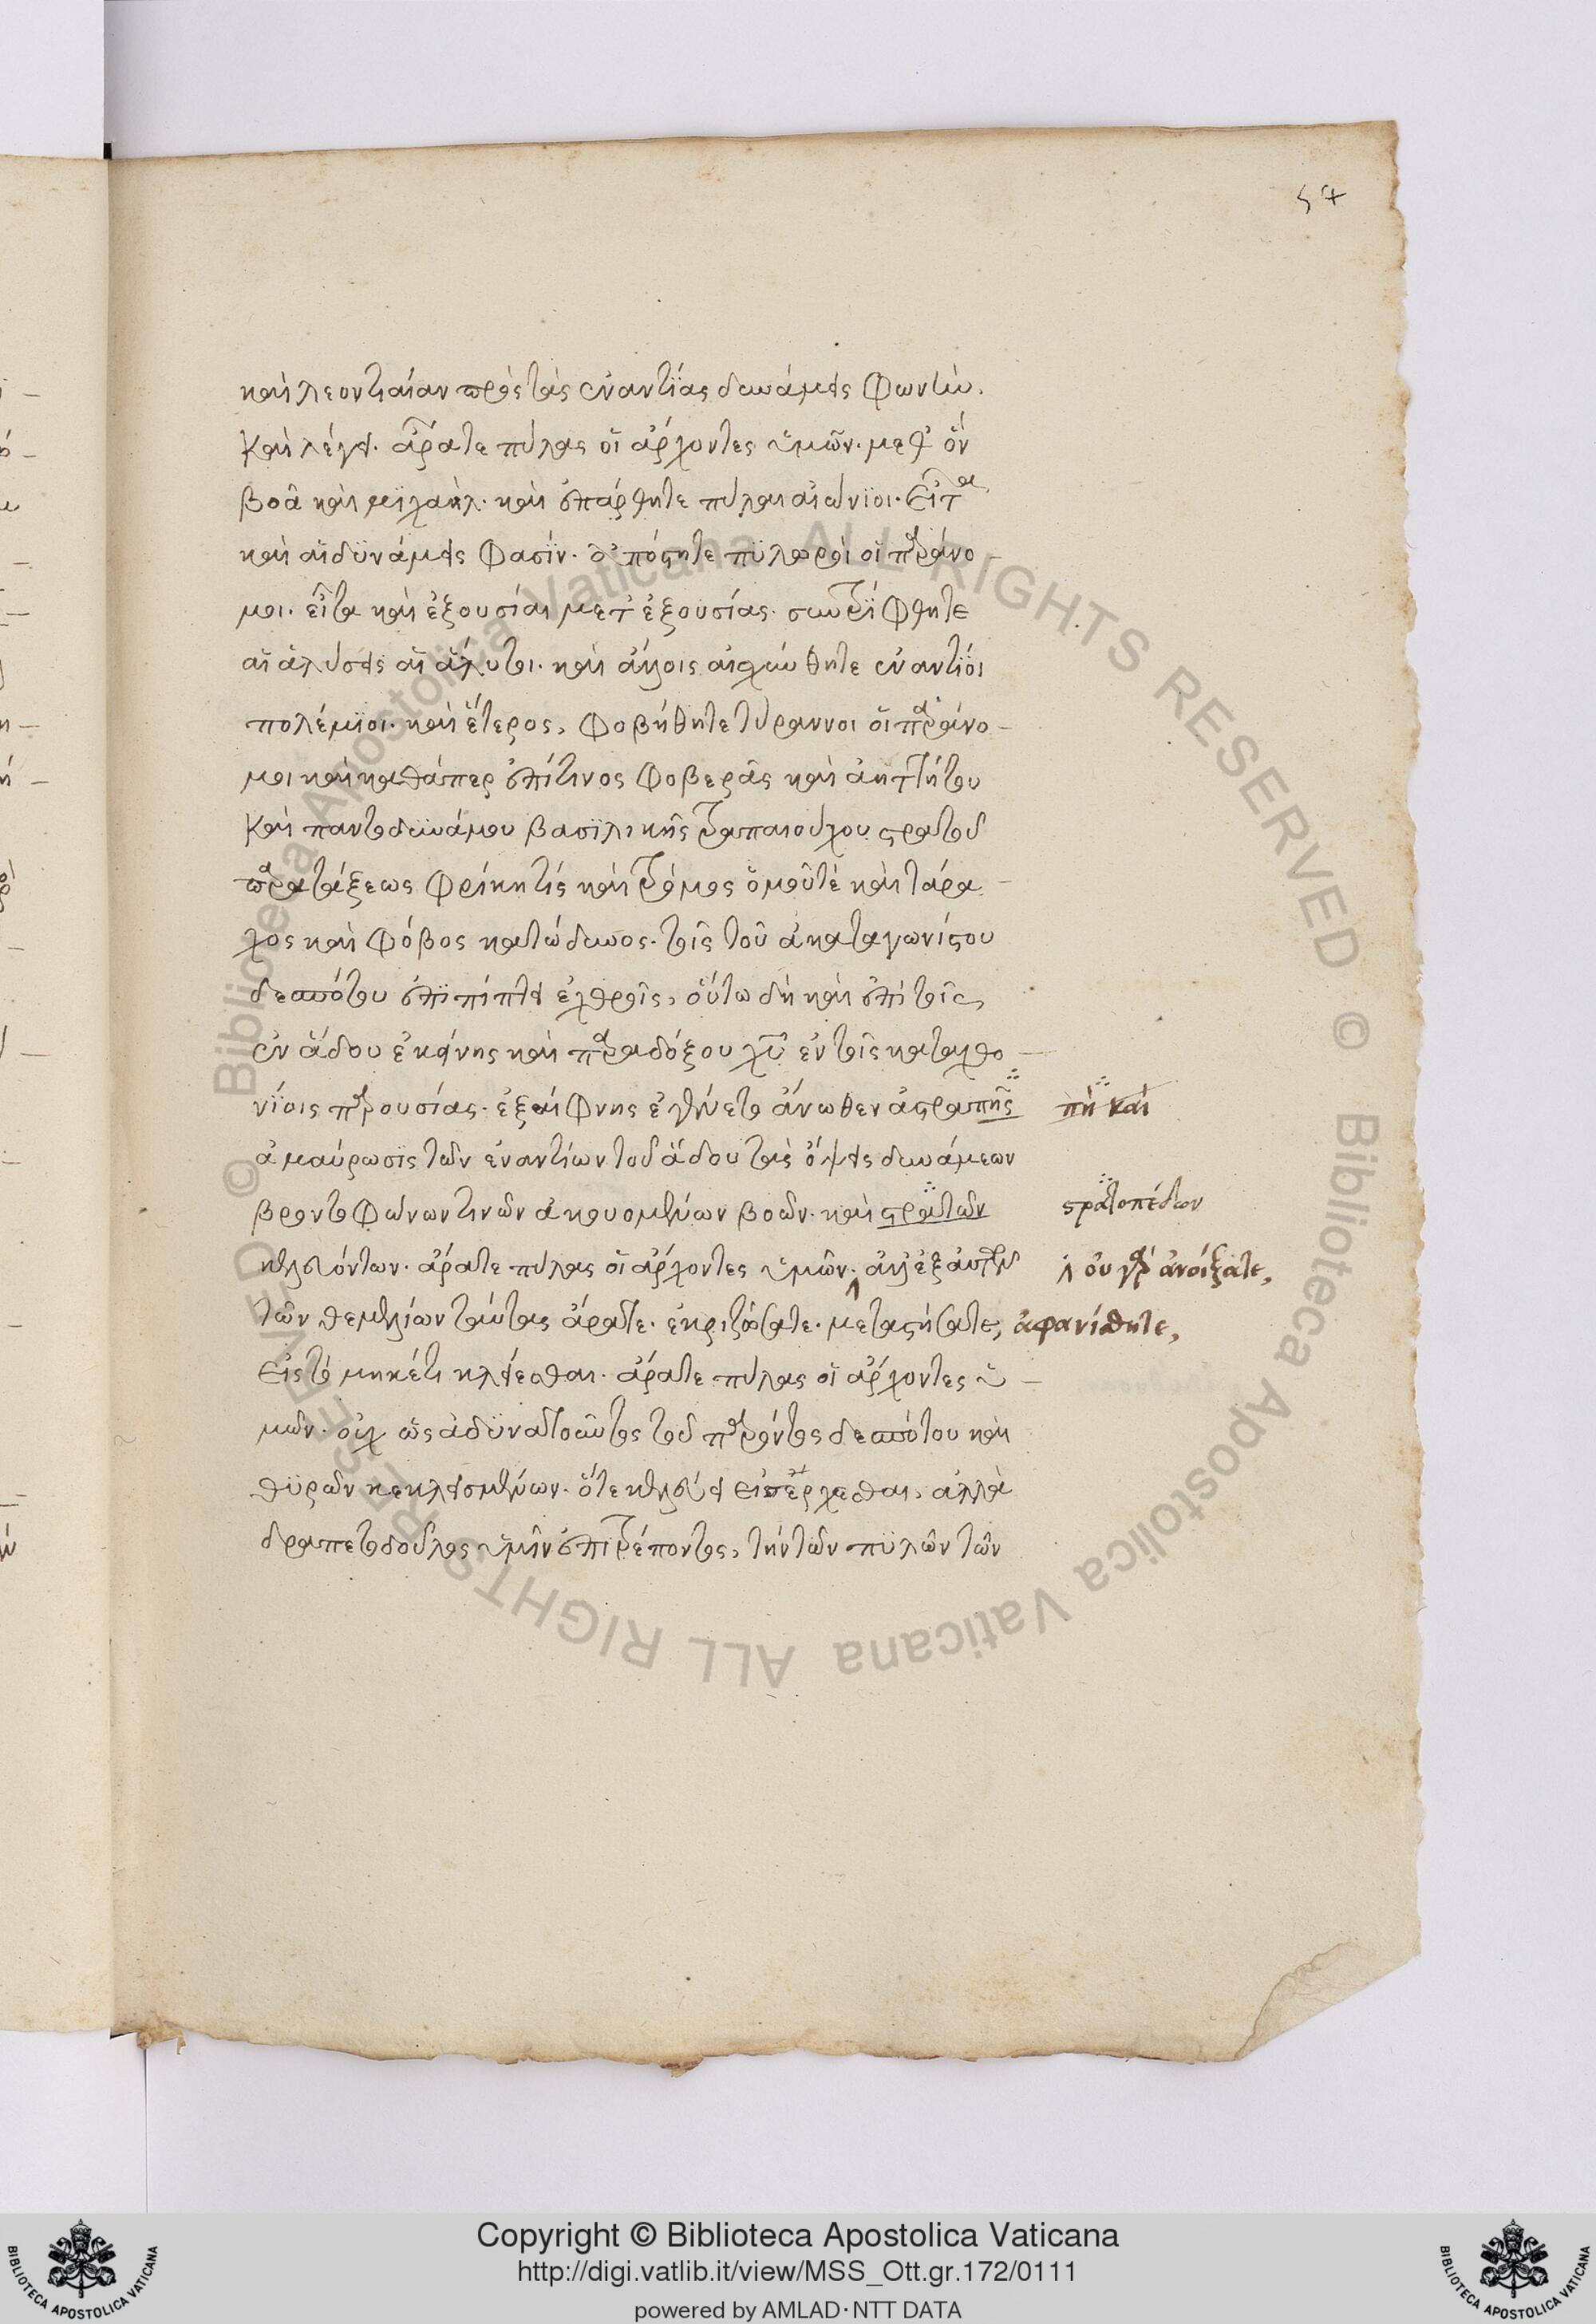 57
καὶ λεονταίαν πρὸς τὰς ἐναντίας δυνάμεις φωνὴν.
καὶ λέγει. ἄρατε πύλας οἱ ἄρχοντες ὑμῶν. μεθ' ὃν
βοᾶ καὶ μιχαὴλ. καὶ ἐπάρθητε πύλαι αἰώνιοι. εἶτα
καὶ αἱ δυνάμεις φασίν. ἀπόστητε πυλωροὶ οἱ παράνο-
μοι. εἶτα καὶ ἐξουσίαι μετ' ἐξουσίας. συντρίφθητε
αἱ ἀλύσεις αἱ ἄλυτοι. καὶ ἄλλοις αἰσχύνθητε ἐναντίοι
πολέμιοι. καὶ ἕτερος, φοβήθητε τύραννοι οἱ παράνο-
μοι καὶ καθάπερ ἐπί τινος φοβερᾶς καὶ ἀηττήτου
καὶ παντοδυνάμου βασιλικῆς τροπαιούχου στρατοῦ
παρατάξεως φρίκη τίς καὶ τρόμος ὁμοῦ τὲ καὶ τάρα-
χος καὶ φόβος κατώδυνος. τοῖς τοῦ ἀκαταγωνίστου
δεσπότου ἐπιπίπτει ἐχθροῖς, οὕτω δὴ καὶ ἐπὶ τοῖς
ἐν ἅδου ἐκείνης καὶ παραδόξου χυ ἐν τοῖς καταχθο-
νίοις παρουσίας. ἐξαίφνης ἐγένετο ἄνωθεν ἀστραπῆς πὴ καὶ
ἀμαύρωσις τῶν ἐναντίων τοῦ ἅδου τὰς ὄψεις δυνάμεων
βροντοφώνων τινῶν ἀκουομένων βοῶν. καὶ στρατῶν στρατοπέδων
κελευόντων. ἄρατε πύλας οἱ ἄρχοντες ὑμῶν. ἀλλ' ἐξ αὐτῶν οὐ γὰρ ἀνοίξατε,
τῶν θεμελίων ταύτας ἄρατε. ἐκριζώσατε. μεταστήσατε, ἀφανίσθητε,
εἰς τὸ μηκέτι κλείεσθαι. ἄρατε πύλας οἱ ἄρχοντες ὑ-
μῶν. οὐχ ὡς ἀδυνατοῦντος τοῦ παρόντος δεσπότου καὶ
θυρῶν κεκλεισμένων. ὅτε κελεύει εἰσέρχεσθαι, ἀλλὰ
δραπετοδούλοις ὑμῖν ἐπιτρέποντος, τὴν τῶν πυλῶν τῶν
© Biblioteca Apostolica Vaticana ALL RIGHTS RESERVED © Biblioteca Apostolica Vaticana ALL RIGHTS RESERVED
Copyright © Biblioteca Apostolica Vaticana
http://digi.vatlib.it/view/MSS_Ott.gr.172/0111
powered by AMLAD·NTT DATA
BIBLIOTECA APOSTOLICA VATICANA
BIBLIOTECA APOSTOLICA VATICANA